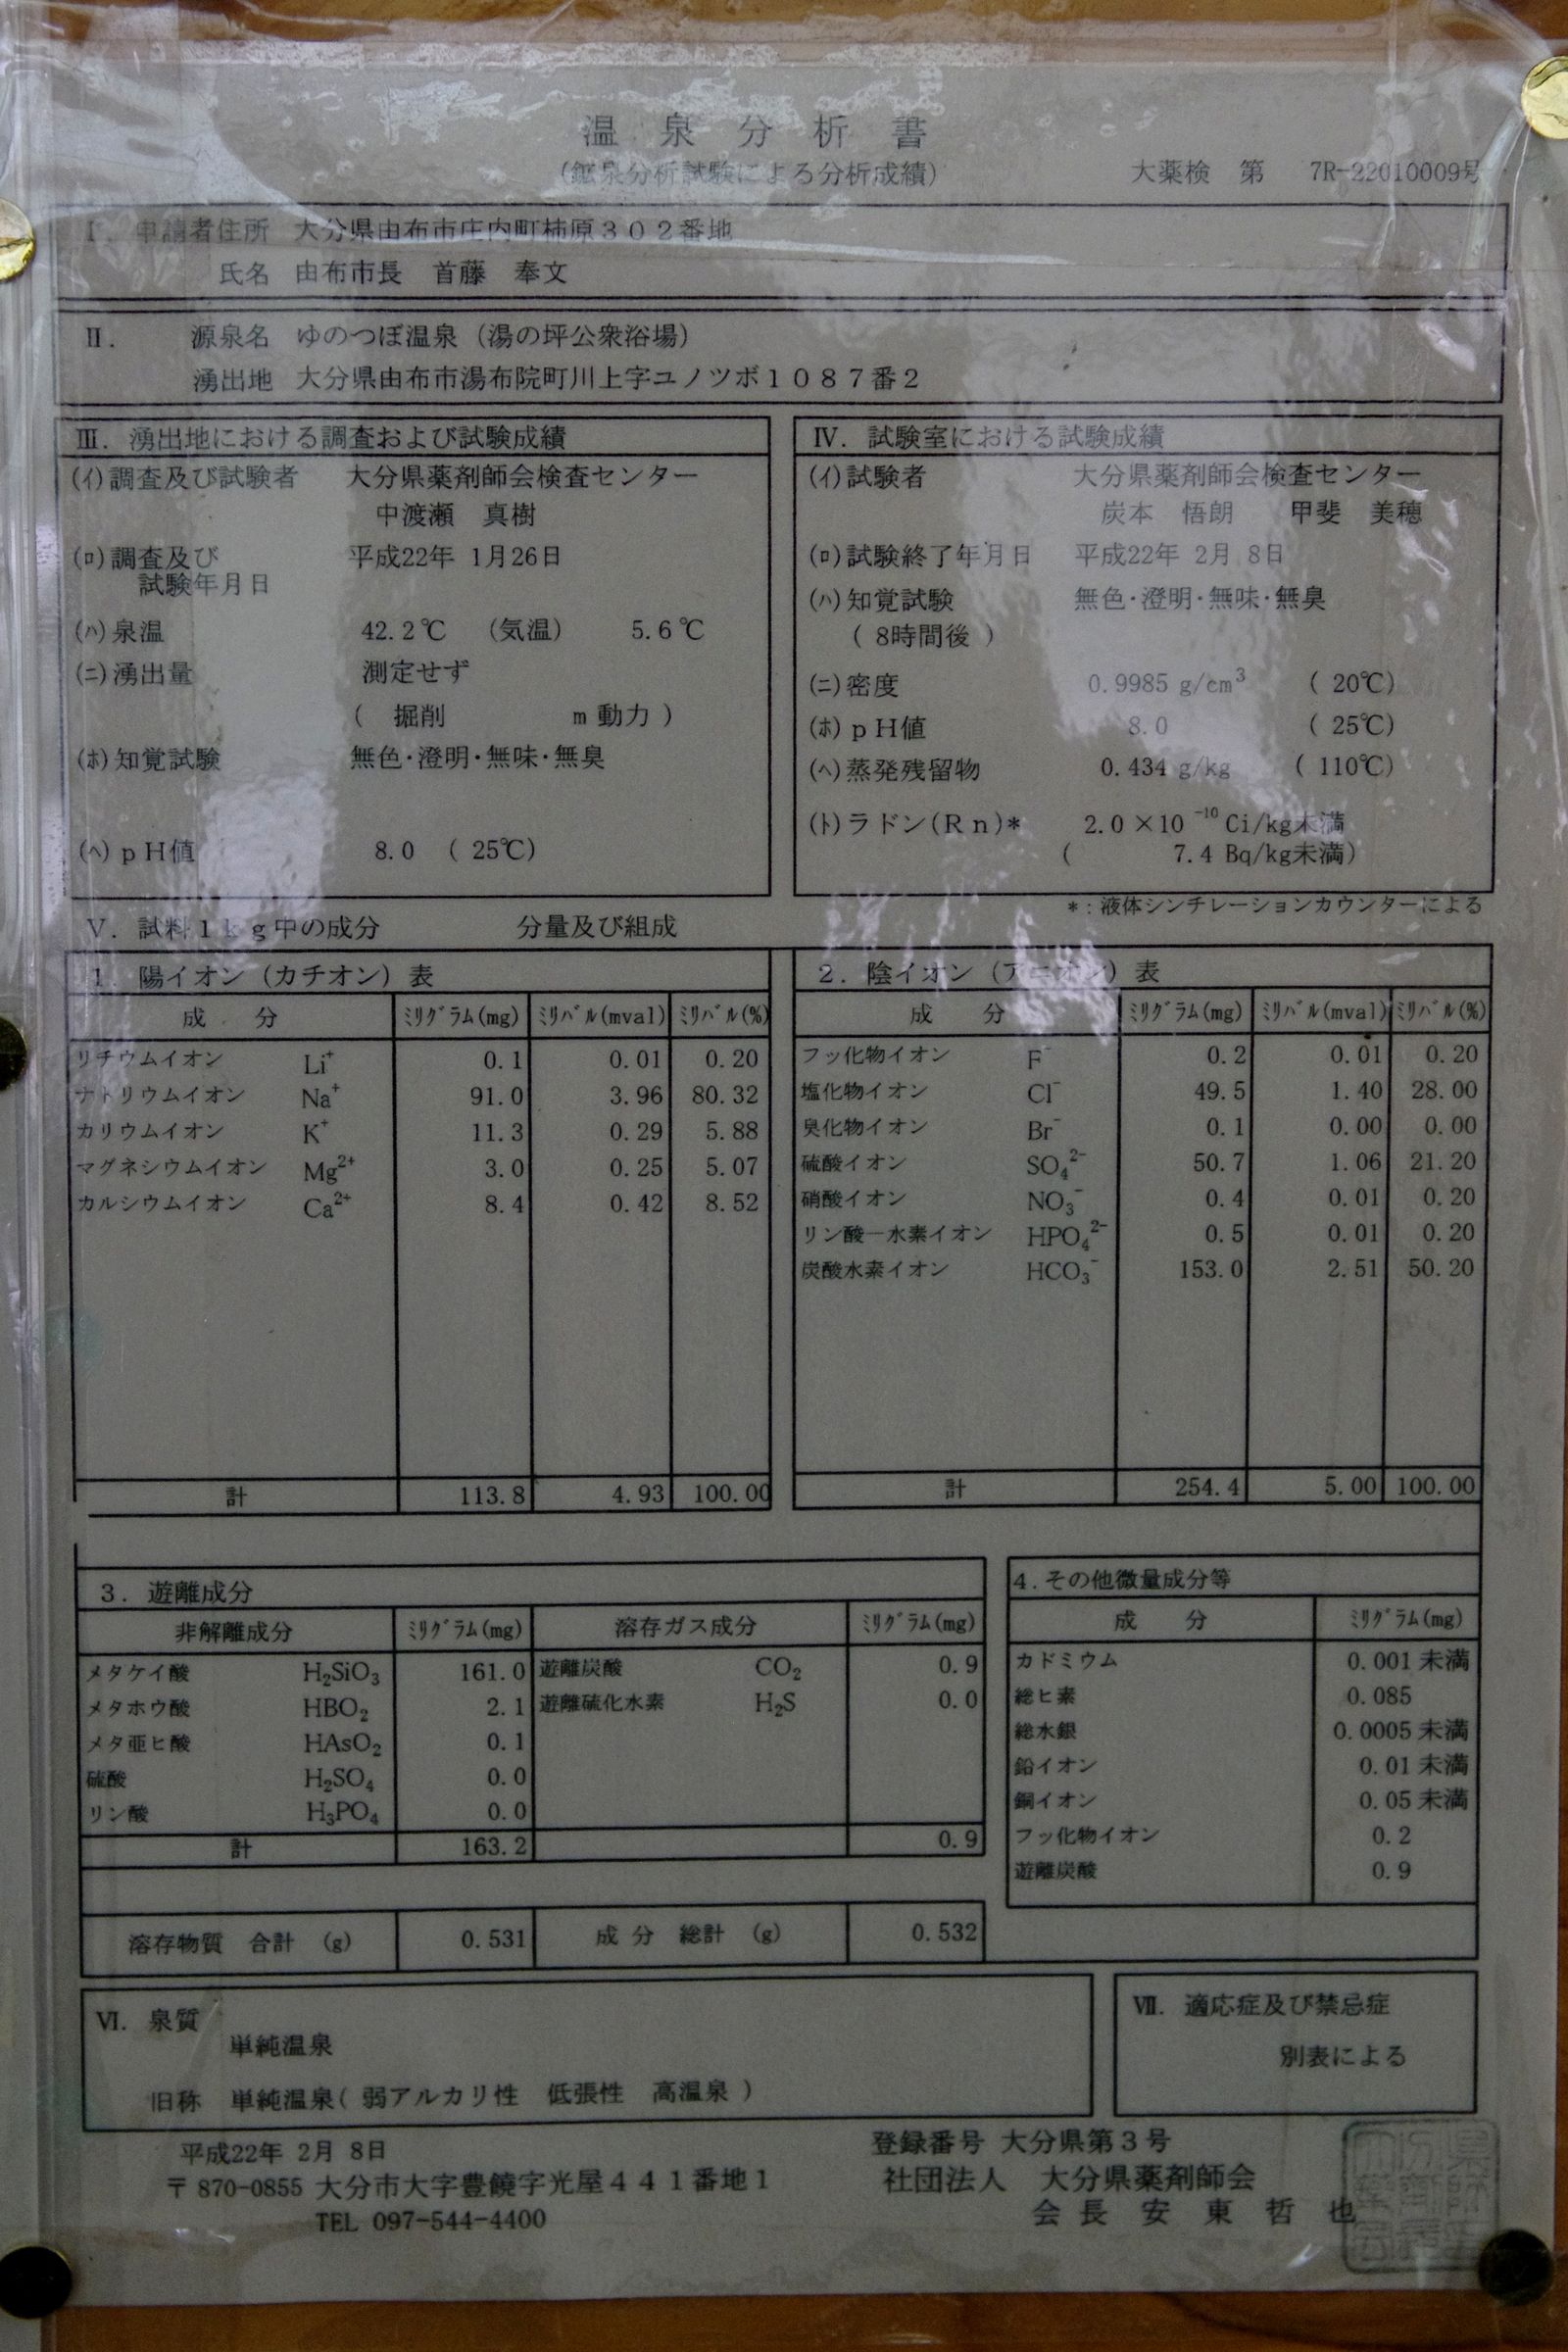 温泉分析書
(鉱泉分析試験による分析成績) 大薬検 第 7R-22010009号
Ⅰ. 申請者住所 大分県由布市庄内町柿原302番地
氏名 由布市長 首藤 奉文
Ⅱ. 源泉名 ゆのつぼ温泉(湯の坪公衆浴場)
湧出地 大分県由布市湯布院町川上字ユノツボ1087番2
Ⅲ. 湧出地における調査および試験成績
(ｲ)調査及び試験者 大分県薬剤師会検査センター
中渡瀬 真樹
(ﾛ)調査及び 平成22年 1月26日
試験年月日
(ﾊ)泉温 42.2℃ (気温) 5.6℃
(ﾆ)湧出量 測定せず
( 掘削 m 動力 )
(ﾎ)知覚試験 無色･澄明･無味･無臭
(ﾍ)pH値 8.0 ( 25℃)
Ⅳ. 試験室における試験成績
(ｲ)試験者 大分県薬剤師会検査センター
炭本 悟朗 甲斐 美穂
(ﾛ)試験終了年月日 平成22年 2月 8日
(ﾊ)知覚試験 無色･澄明･無味･無臭
( 8時間後 )
(ﾆ)密度 0.9985 g/cm³ ( 20℃)
(ﾎ)pH値 8.0 ( 25℃)
(ﾍ)蒸発残留物 0.434 g/kg ( 110℃)
(ﾄ)ラドン(Rn)* 2.0×10⁻¹⁰ Ci/kg未満
( 7.4 Bq/kg未満)
*:液体シンチレーションカウンターによる
Ⅴ. 試料1kg中の成分 分量及び組成
1. 陽イオン(カチオン)表
成 分 ﾐﾘｸﾞﾗﾑ(mg) ﾐﾘﾊﾞﾙ(mval) ﾐﾘﾊﾞﾙ(%)
リチウムイオン Li⁺ 0.1 0.01 0.20
ナトリウムイオン Na⁺ 91.0 3.96 80.32
カリウムイオン K⁺ 11.3 0.29 5.88
マグネシウムイオン Mg²⁺ 3.0 0.25 5.07
カルシウムイオン Ca²⁺ 8.4 0.42 8.52
計 113.8 4.93 100.00
2. 陰イオン(アニオン)表
成 分 ﾐﾘｸﾞﾗﾑ(mg) ﾐﾘﾊﾞﾙ(mval) ﾐﾘﾊﾞﾙ(%)
フッ化物イオン F⁻ 0.2 0.01 0.20
塩化物イオン Cl⁻ 49.5 1.40 28.00
臭化物イオン Br⁻ 0.1 0.00 0.00
硫酸イオン SO₄²⁻ 50.7 1.06 21.20
硝酸イオン NO₃⁻ 0.4 0.01 0.20
リン酸一水素イオン HPO₄²⁻ 0.5 0.01 0.20
炭酸水素イオン HCO₃⁻ 153.0 2.51 50.20
計 254.4 5.00 100.00
3. 遊離成分
非解離成分 ﾐﾘｸﾞﾗﾑ(mg) 溶存ガス成分 ﾐﾘｸﾞﾗﾑ(mg)
メタケイ酸 H₂SiO₃ 161.0 遊離炭酸 CO₂ 0.9
メタホウ酸 HBO₂ 2.1 遊離硫化水素 H₂S 0.0
メタ亜ヒ酸 HAsO₂ 0.1
硫酸 H₂SO₄ 0.0
リン酸 H₃PO₄ 0.0
計 163.2 0.9
溶存物質 合計 (g) 0.531 成分 総計 (g) 0.532
4.その他微量成分等
成 分 ﾐﾘｸﾞﾗﾑ(mg)
カドミウム 0.001 未満
総ヒ素 0.085
総水銀 0.0005 未満
鉛イオン 0.01 未満
銅イオン 0.05 未満
フッ化物イオン 0.2
遊離炭酸 0.9
Ⅵ. 泉質
単純温泉
旧称 単純温泉( 弱アルカリ性 低張性 高温泉 )
Ⅶ. 適応症及び禁忌症
別表による
平成22年 2月 8日
〒870-0855 大分市大字豊饒字光屋441番地1
TEL 097-544-4400
登録番号 大分県第3号
社団法人 大分県薬剤師会
会長 安東哲也